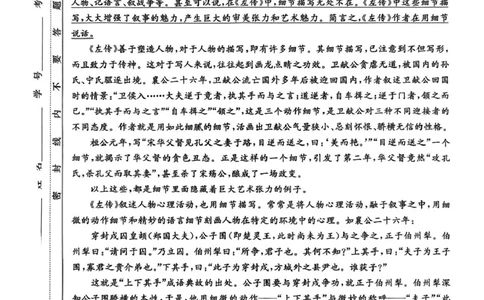 人物、记语言、叙战争等。甚至可以说,在《左传》中,细节描写无处不在。《左传》中这些细节描
写,大大增强了叙事的魅力,产生巨大的审美张力和艺术魅力。简言之,《左传》作者在用细节
说话。
《左传》善于塑造人物,对于人物的描写,即有许多细节。其细节描写,已注意到不但写形,
而且致力于传神。这对于写人来说,往往起到画龙点睛之功效。卫献公贪虐无道,被国内的孙
氏、宁氏驱逐出境。襄公二十六年,卫献公流亡国外多年后被迎回国内,作者叙述卫献公回国
时的情景:“卫侯入……大夫逆于竟者,执其手而与之言;道逆者,自车揖之;逆于门者,颔之而
已。”“执其手而与之言”“自车揖之”“颔之”,这是三个动作细节,是卫献公对三种不同迎接者的
不同态度。作者就是用如此细腻的细节,活画出卫献公气量狭小、忌刻怀恨、骄横无信的性格。
桓公元年,写“宋华父督见孔父之妻于路,目逆而送之,曰:‘美而艳。’”“目逆而送之”一个
细节,就揭示了华父督的贪色丑态。正是这样的一个细节,引发了第二年,华父督竟然“攻孔
氏,杀孔父而取其妻”,甚至杀了宋殇公,酿成了一场政变。
以上这些,都是细节里面隐藏着巨大艺术张力的例子。
《左传》叙述人物心理活动,也用细节描写。常常是将人物心理活动,融于叙事之中,用细
微的动作细节和精妙的语言细节刻画人物在特定的环境中的心理。如襄公二十六年:
穿封戌囚皇颉(郑国大夫),公子围(即楚灵王,此时尚未为王)与之争之,正于伯州犁。伯
州犁曰:“请问于囚。”乃立囚。伯州犁曰:“所争,君子也。其何不知?”上其手,曰:“夫子为王子
围,寡君之贵介弟也。”下其手,曰:“此子为穿封戌,方城外之县尹也。谁获子?”
这就是“上下其手”成语典故的出处。公子围要与穿封戌争功,就正于伯州犁。伯州犁深
考
题
答
要
不
内
线
封
密
学号
姓名